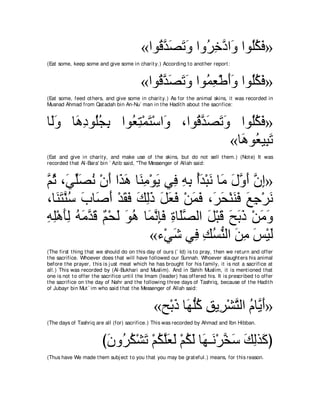 «فَكُلُوا وَادَّخِرُوا وَتَصَدَّقُوا»
(Eat some, keep some and give some in charity.) According to another report:
«فَكُلُوا وَأَطْعِمُوا وَتَصَدَّقُوا»
(Eat some, feed others, and give some in charity.) As for the animal skins, it was recorded in
Musnad Ahmad from Qatadah bin An-Nu`man in the Hadith about the sacrifice:
«فَكُلُوا وَتَصَدَّقُوا، وَاسْتَمْتِعُوا بِجُلُودِهَا وَلَا
تَبِيعُوهَا»
(Eat and give in charity, and make use of the skins, but do not sell them.) (Note) It was
recorded that Al-Bara' bin `Azib said, "The Messenger of Allah said:
«إِنَّ أَوَّلَ مَا نَبْدَأُ بِهِ فِي يَوْمِنَا هَذَا أَنْ نُصَلِّيَ، ثُمَّ
نَرْجِعَ فَنَنْحَرَ، فَمَنْ فَعَلَ ذَلِكَ فَقَدْ أَصَابَ سُنَّتَنَا،
وَمَنْ ذَبَحَ قَبْلَ الصَّلَاةِ فَإِنَّمَا هُوَ لَحْمٌ قَدَّمَهُ لِأَهْلِهِ
لَيْسَ مِنَ النُّسُكِ فِي شَيْء»
(The first thing that we should do on this day of ours (`Id) is to pray, then we return and offer
the sacrifice. Whoever does that will have followed our Sunnah. Whoever slaughters his animal
before the prayer, this is just meat which he has brought for his family, it is not a sacrifice at
all.) This was recorded by (Al-Bukhari and Muslim). And in Sahih Muslim, it is mentioned that
one is not to offer the sacrifice until the Imam (leader) has offered his. It is prescribed to offer
the sacrifice on the day of Nahr and the following three days of Tashriq, because of the Hadith
of Jubayr bin Mut`im who said that the Messenger of Allah said:
«أَيَّامُ التَّشْرِيقِ كُلُّهَا ذَبْح»
(The days of Tashriq are all (for) sacrifice.) This was recorded by Ahmad and Ibn Hibban.
(كَذَلِكَ سَخَّرْنَـهَا لَكُمْ لَعَلَّكُمْ تَشْكُرُونَ)
(Thus have We made them subject to you that you may be grateful.) means, for this reason.